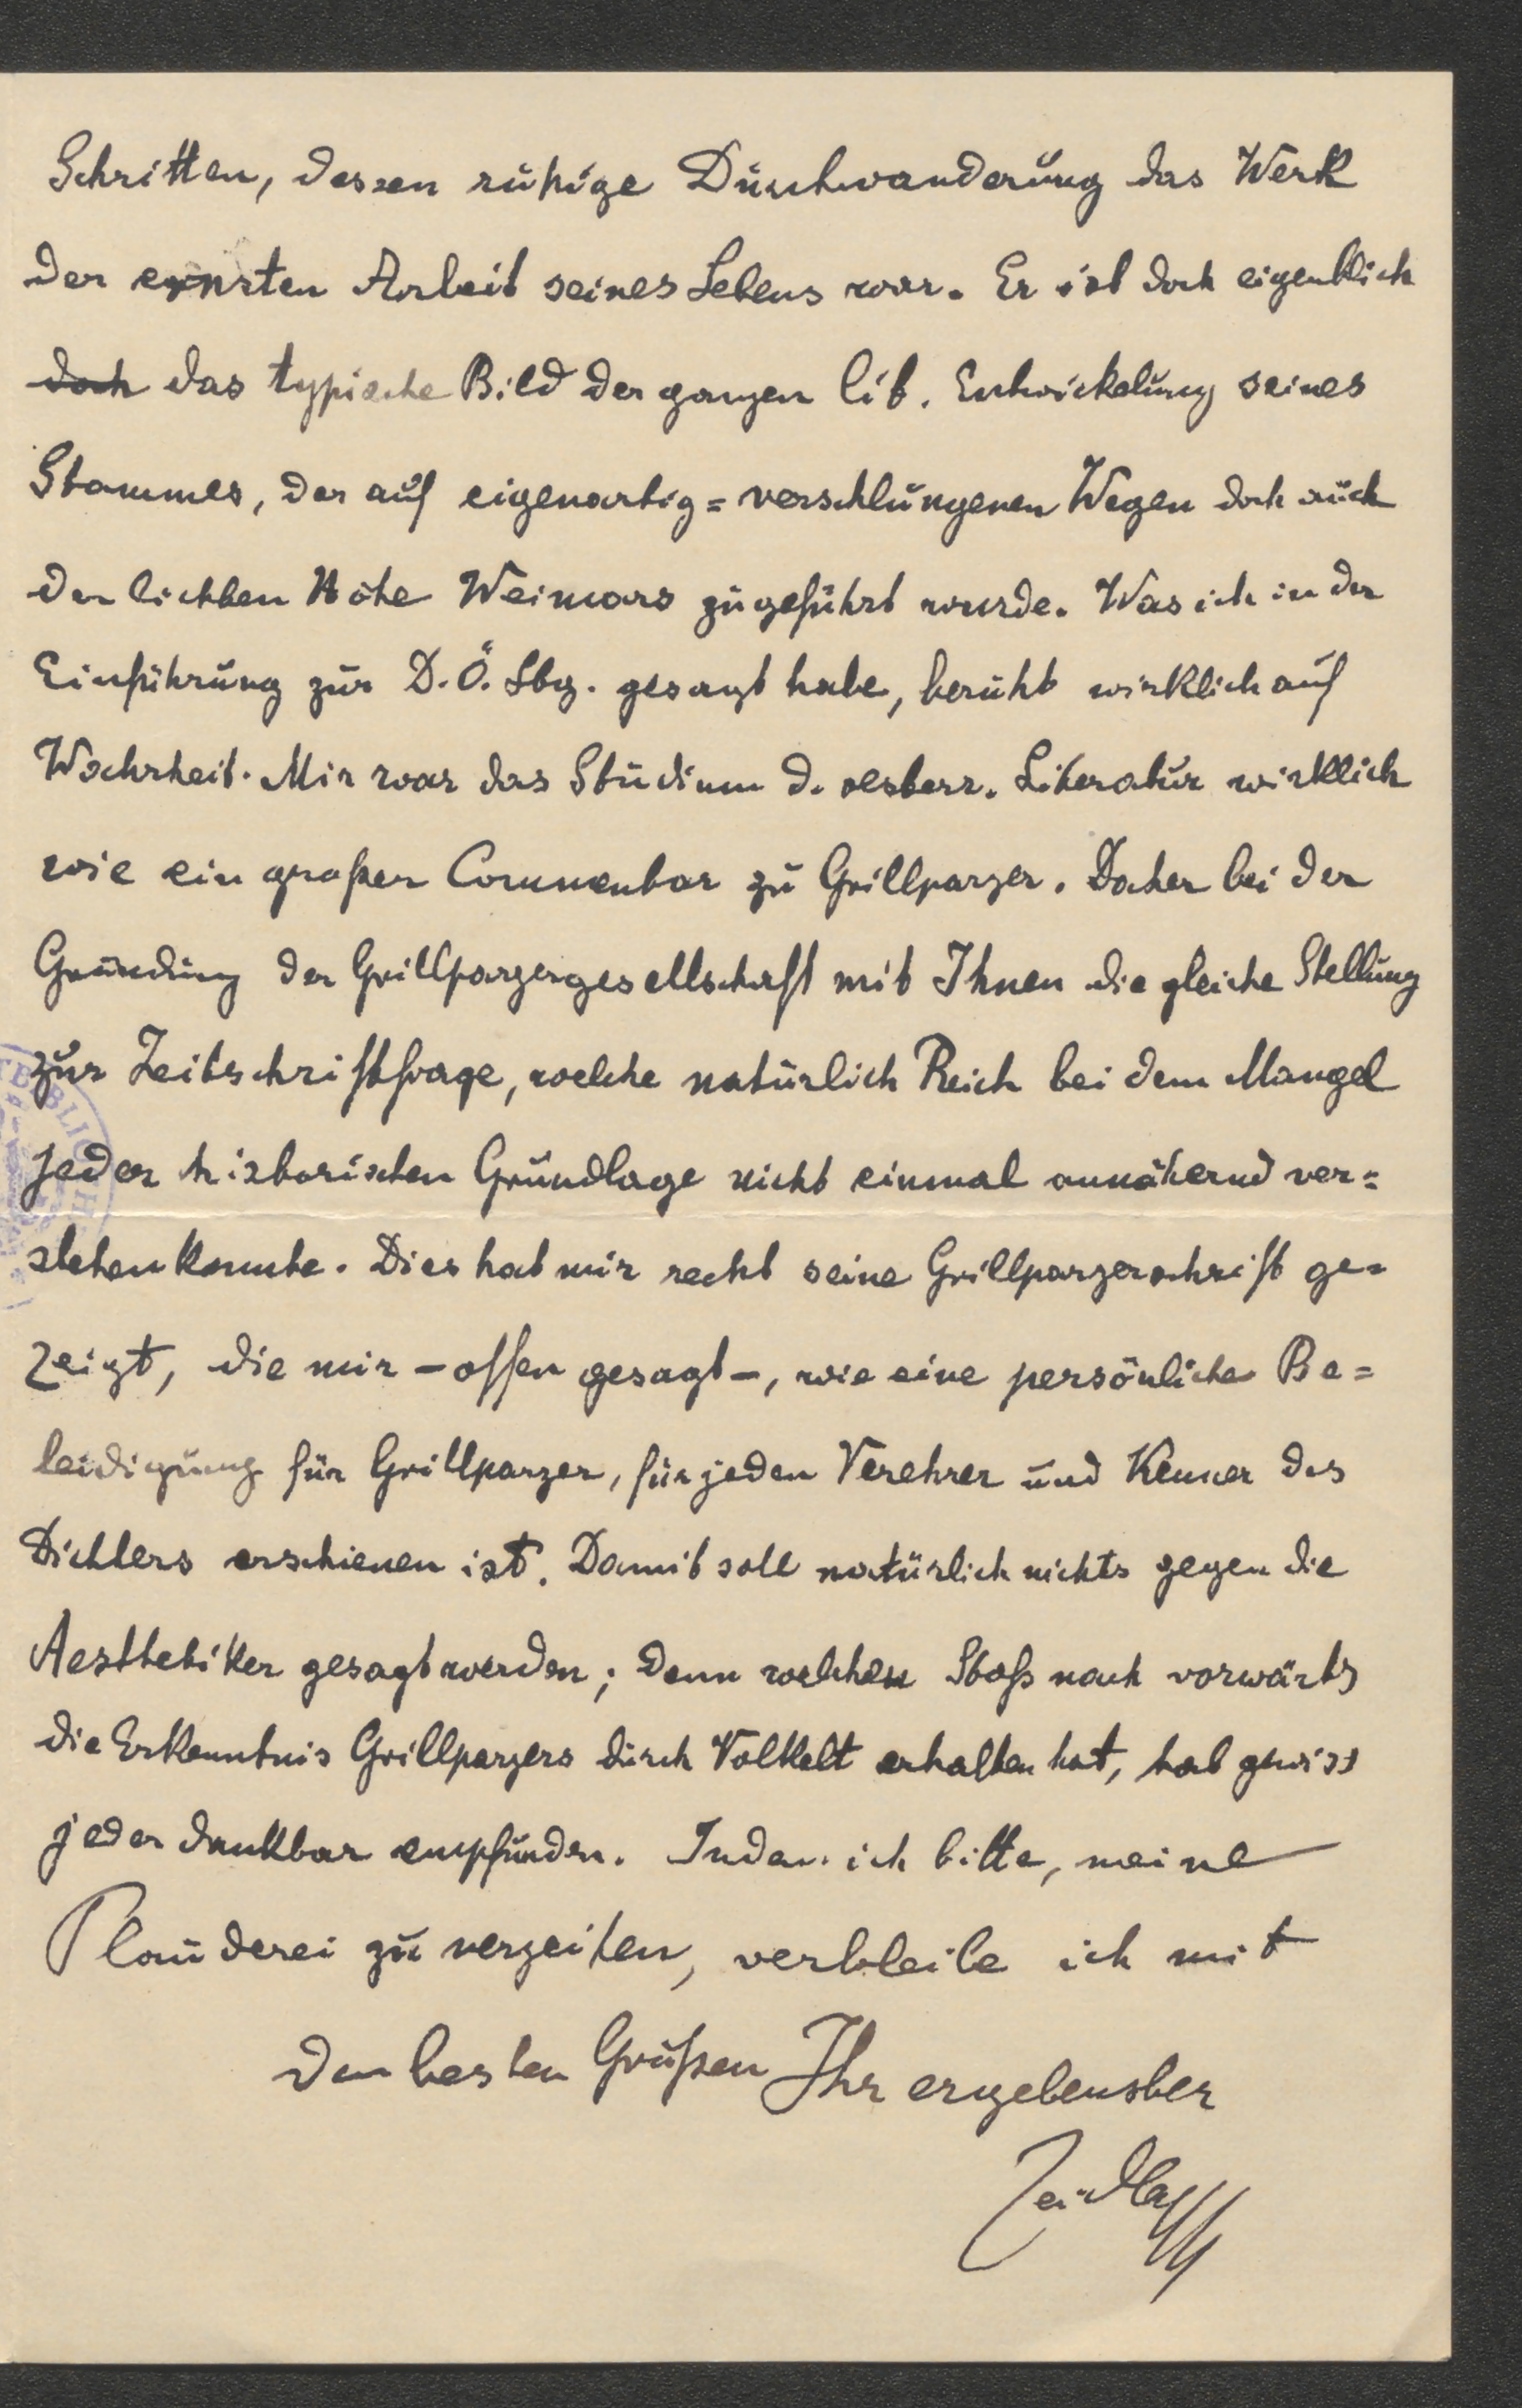 Schritten, dessen ruhige Durchwanderung das Werk
der ernsten Arbeit seines Lebens war. Er ist doch eigentlich
doch das typische Bild der ganzen lit. Entwickelung seines
Stammes, der auf eigenartig=verschlungenen Wegen doch auch
der lichten Höhe Weimars zugeführt wurde. Was ich in der
Einführung zur D. Ö. Ltg. gesagt habe, beruht wirklich auf
Wahrheit. Mir war das Studium d. oesterr. Literatur wirklich
wie ein großer Commentar zu Grillparzer. Daher bei der
Gründung der Grillparzergesellschaft mit Ihnen die gleiche Stellung
zur Zeitschriftfrage, welche natürlich Reich bei dem Mangel
jeder historischen Grundlage nicht einmal annähernd ver=
stehen konnte. Dies hat mir recht seine Grillparzerschrift ge=
zeigt, die mir – offen gesagt –, wie eine persönliche Be=
leidigung für Grillparzer, für jeden Verehrer und Kenner des
Dichters erschienen ist. Damit soll natürlich nichts gegen die
Aesthetiker gesagt werden; denn welchen Stoß nach vorwärts
die Erkenntnis Grillparzers durch Volkelt erhalten hat, hat gewiss
jeder dankbar empfunden. Indem ich bitte, meine
Plauderei zu verzeihen, verbleibe ich mit
den besten Grüßen Ihr ergebenster
Zeidler